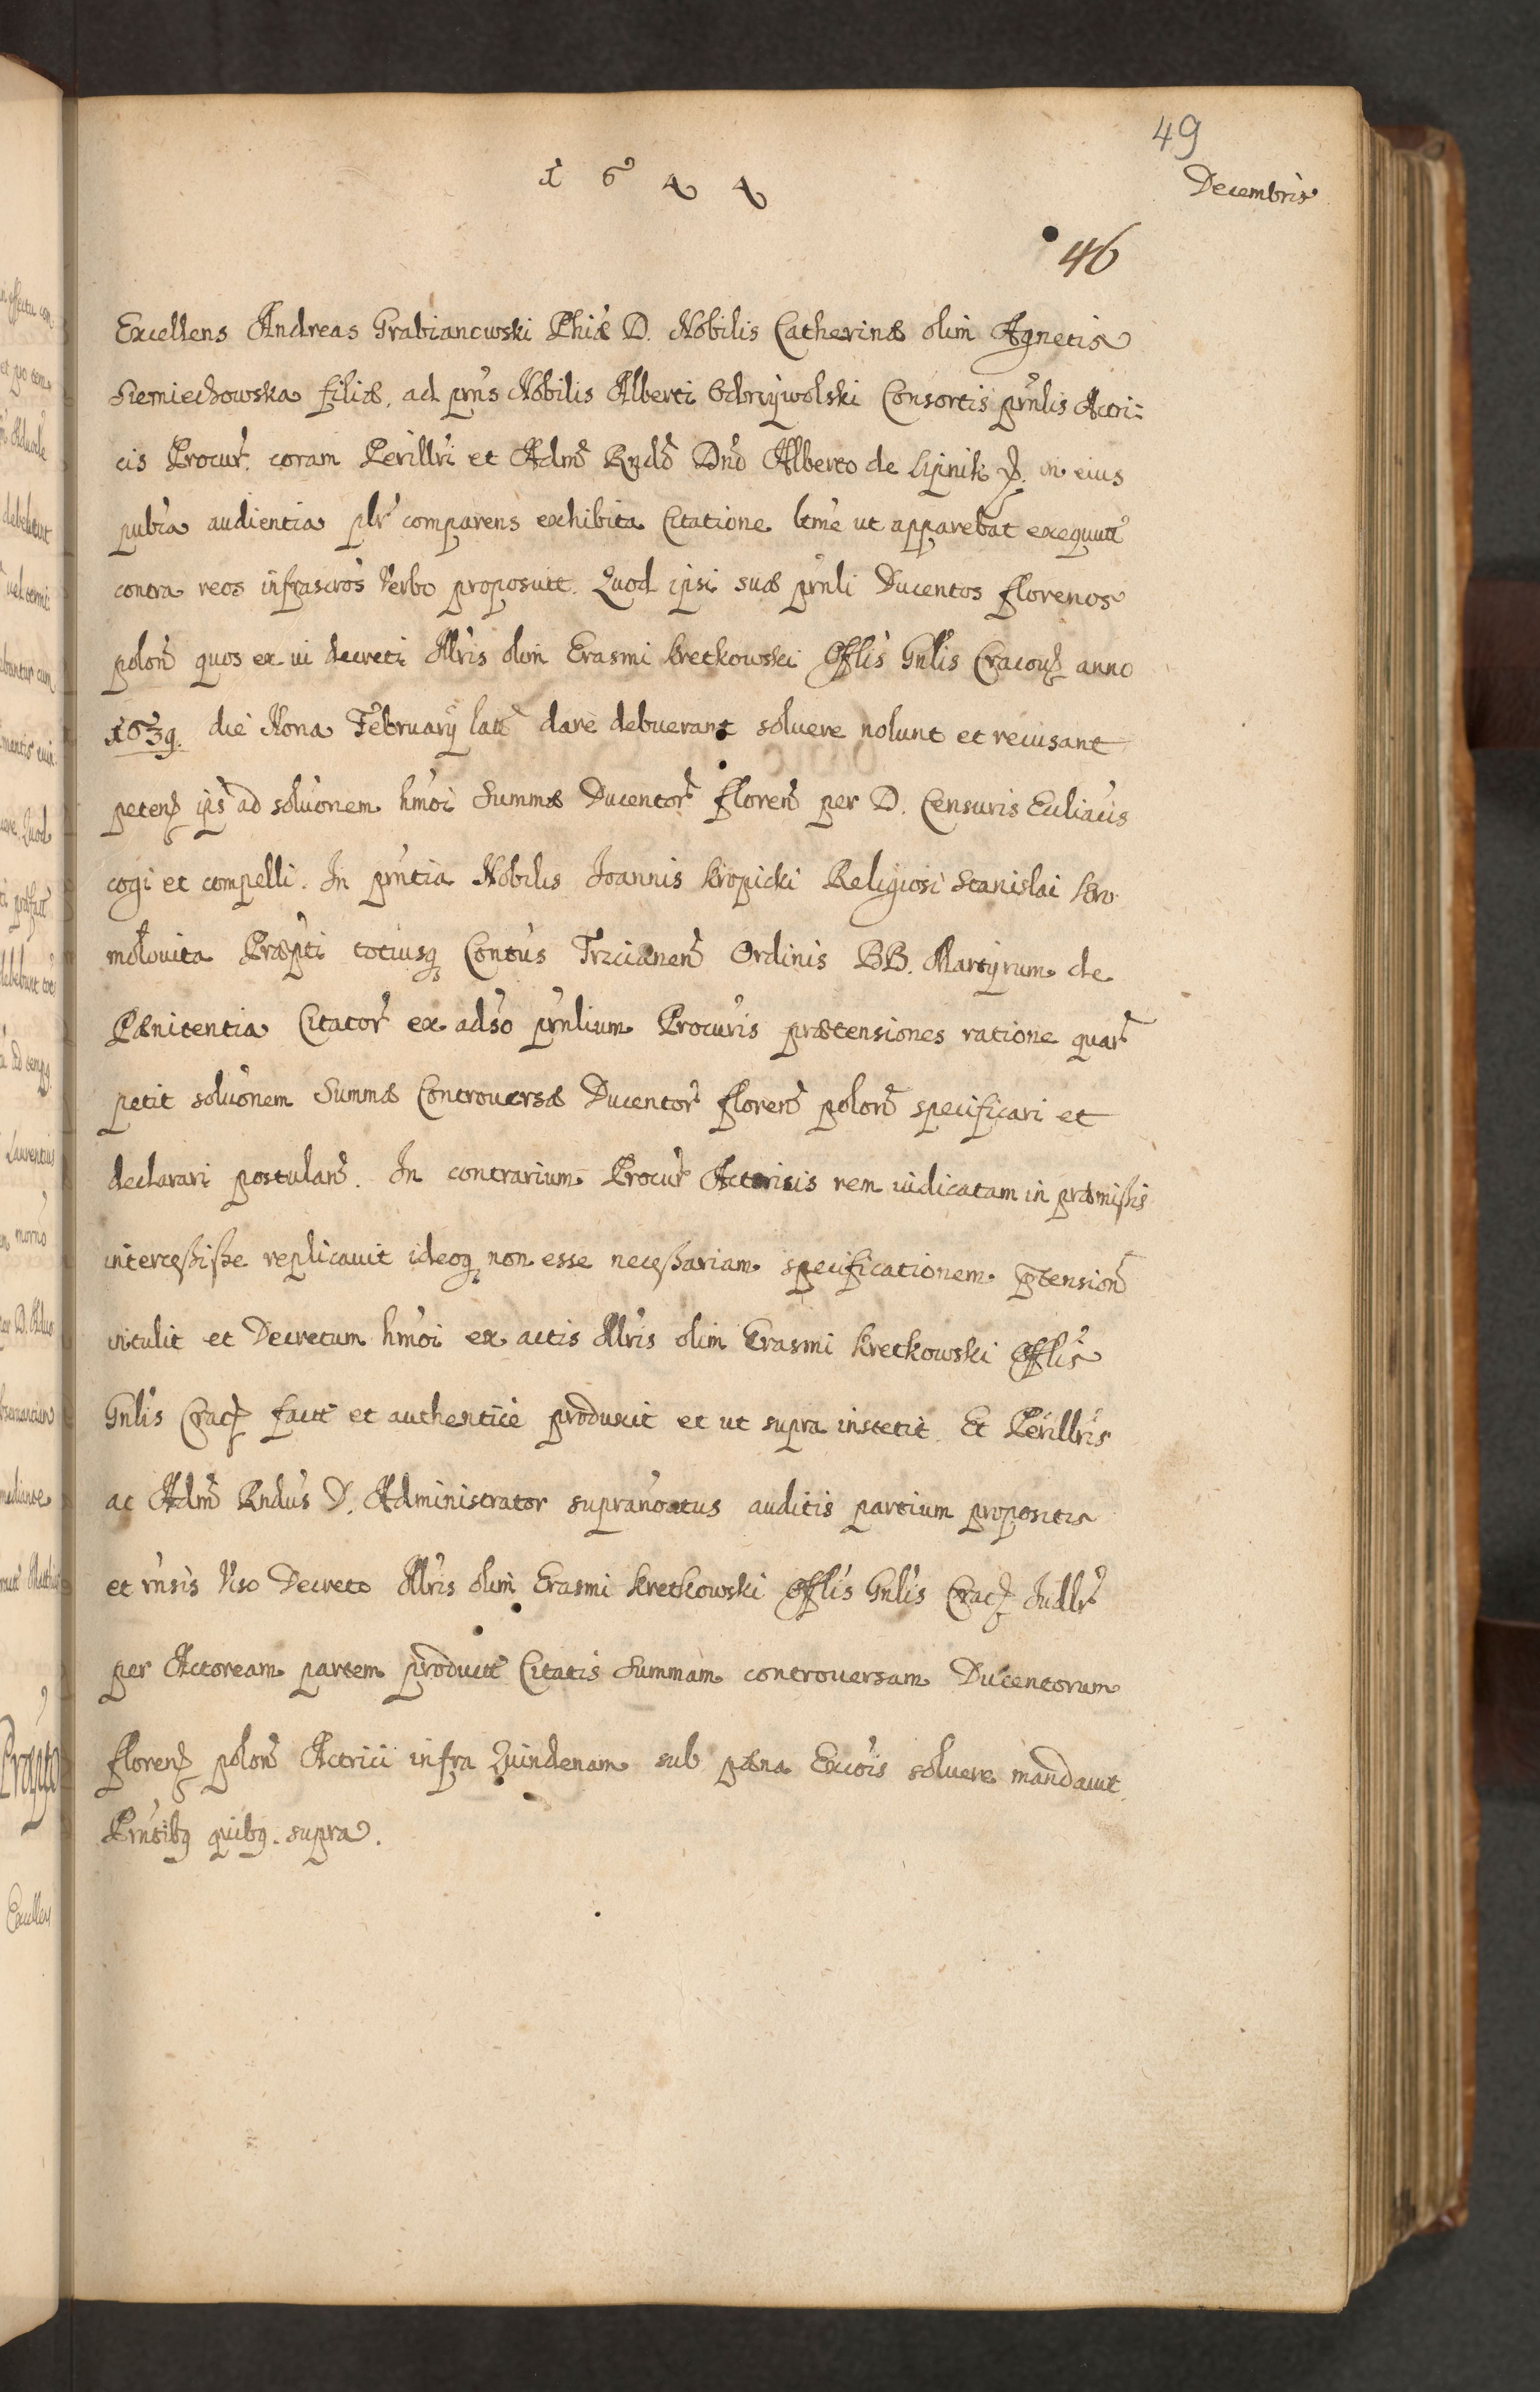 49
1644
Decembris
46
Excellens Andreas Grabianowski Phiæ D. Nobilis Catherinæ olim Agnetis
Siemiechowska filiæ, ad prns Nobilis Alberti Odrzywolski Consortis prnlis Actri=
cis Procur. coram Perillri et Adm Rndo Dno Alberto de Lipnik p. in eius
pubca audientia plr comparens exhibita Citatione ltme ut apparebat exequut
contra reos infrascros verbo proposuit. Quod ipsi suæ prnli Ducentos florenos
polon quos ex vi decreti Illris olim Erasmi Kretkowski Offlis Gnlis Cracou anno
1639. die Nona February lati dare debuerant soluere nolunt et recusant
peten ips ad soluonem hmoi Summæ Ducentor floren per D. Censuris Ecliacis
cogi et compelli. In prntia Nobilis Joannis Kropicki Religiosi Stanislai Kro
molouita Præpti totiusq Contus Trzcianen Ordinis BB. Martyrum de
Pænitentia Citator ex adso prnlium Procuris prætensiones ratione quar
petit soluonem Summæ Controuersæ Ducentor floren polon specificari et
declarari postulan. In contrarium Procur Actricis rem iudicatam in præmissis
intercessisse replicauit ideoq non esse necessariam specificationem ptension
intulit et Decretum hmoi ex actis Illris olim Erasmi Kretkowski Offlis
Gnlis Crac fact et authentice produxit et ut supra institit. Et Perillris
ac Adm Rndus D. Administrator supranoatus auditis partium propositis
et rnsis viso Decreto Illris olim Erasmi Kretkowski Offlis Gnlis Crac Judlr
per Actoream partem product Citatis Summam controuersam Ducentorum
floren polon Actrici infra Quindenam sub pæna Excois soluere mandauit.
Prntibq quibq supra.